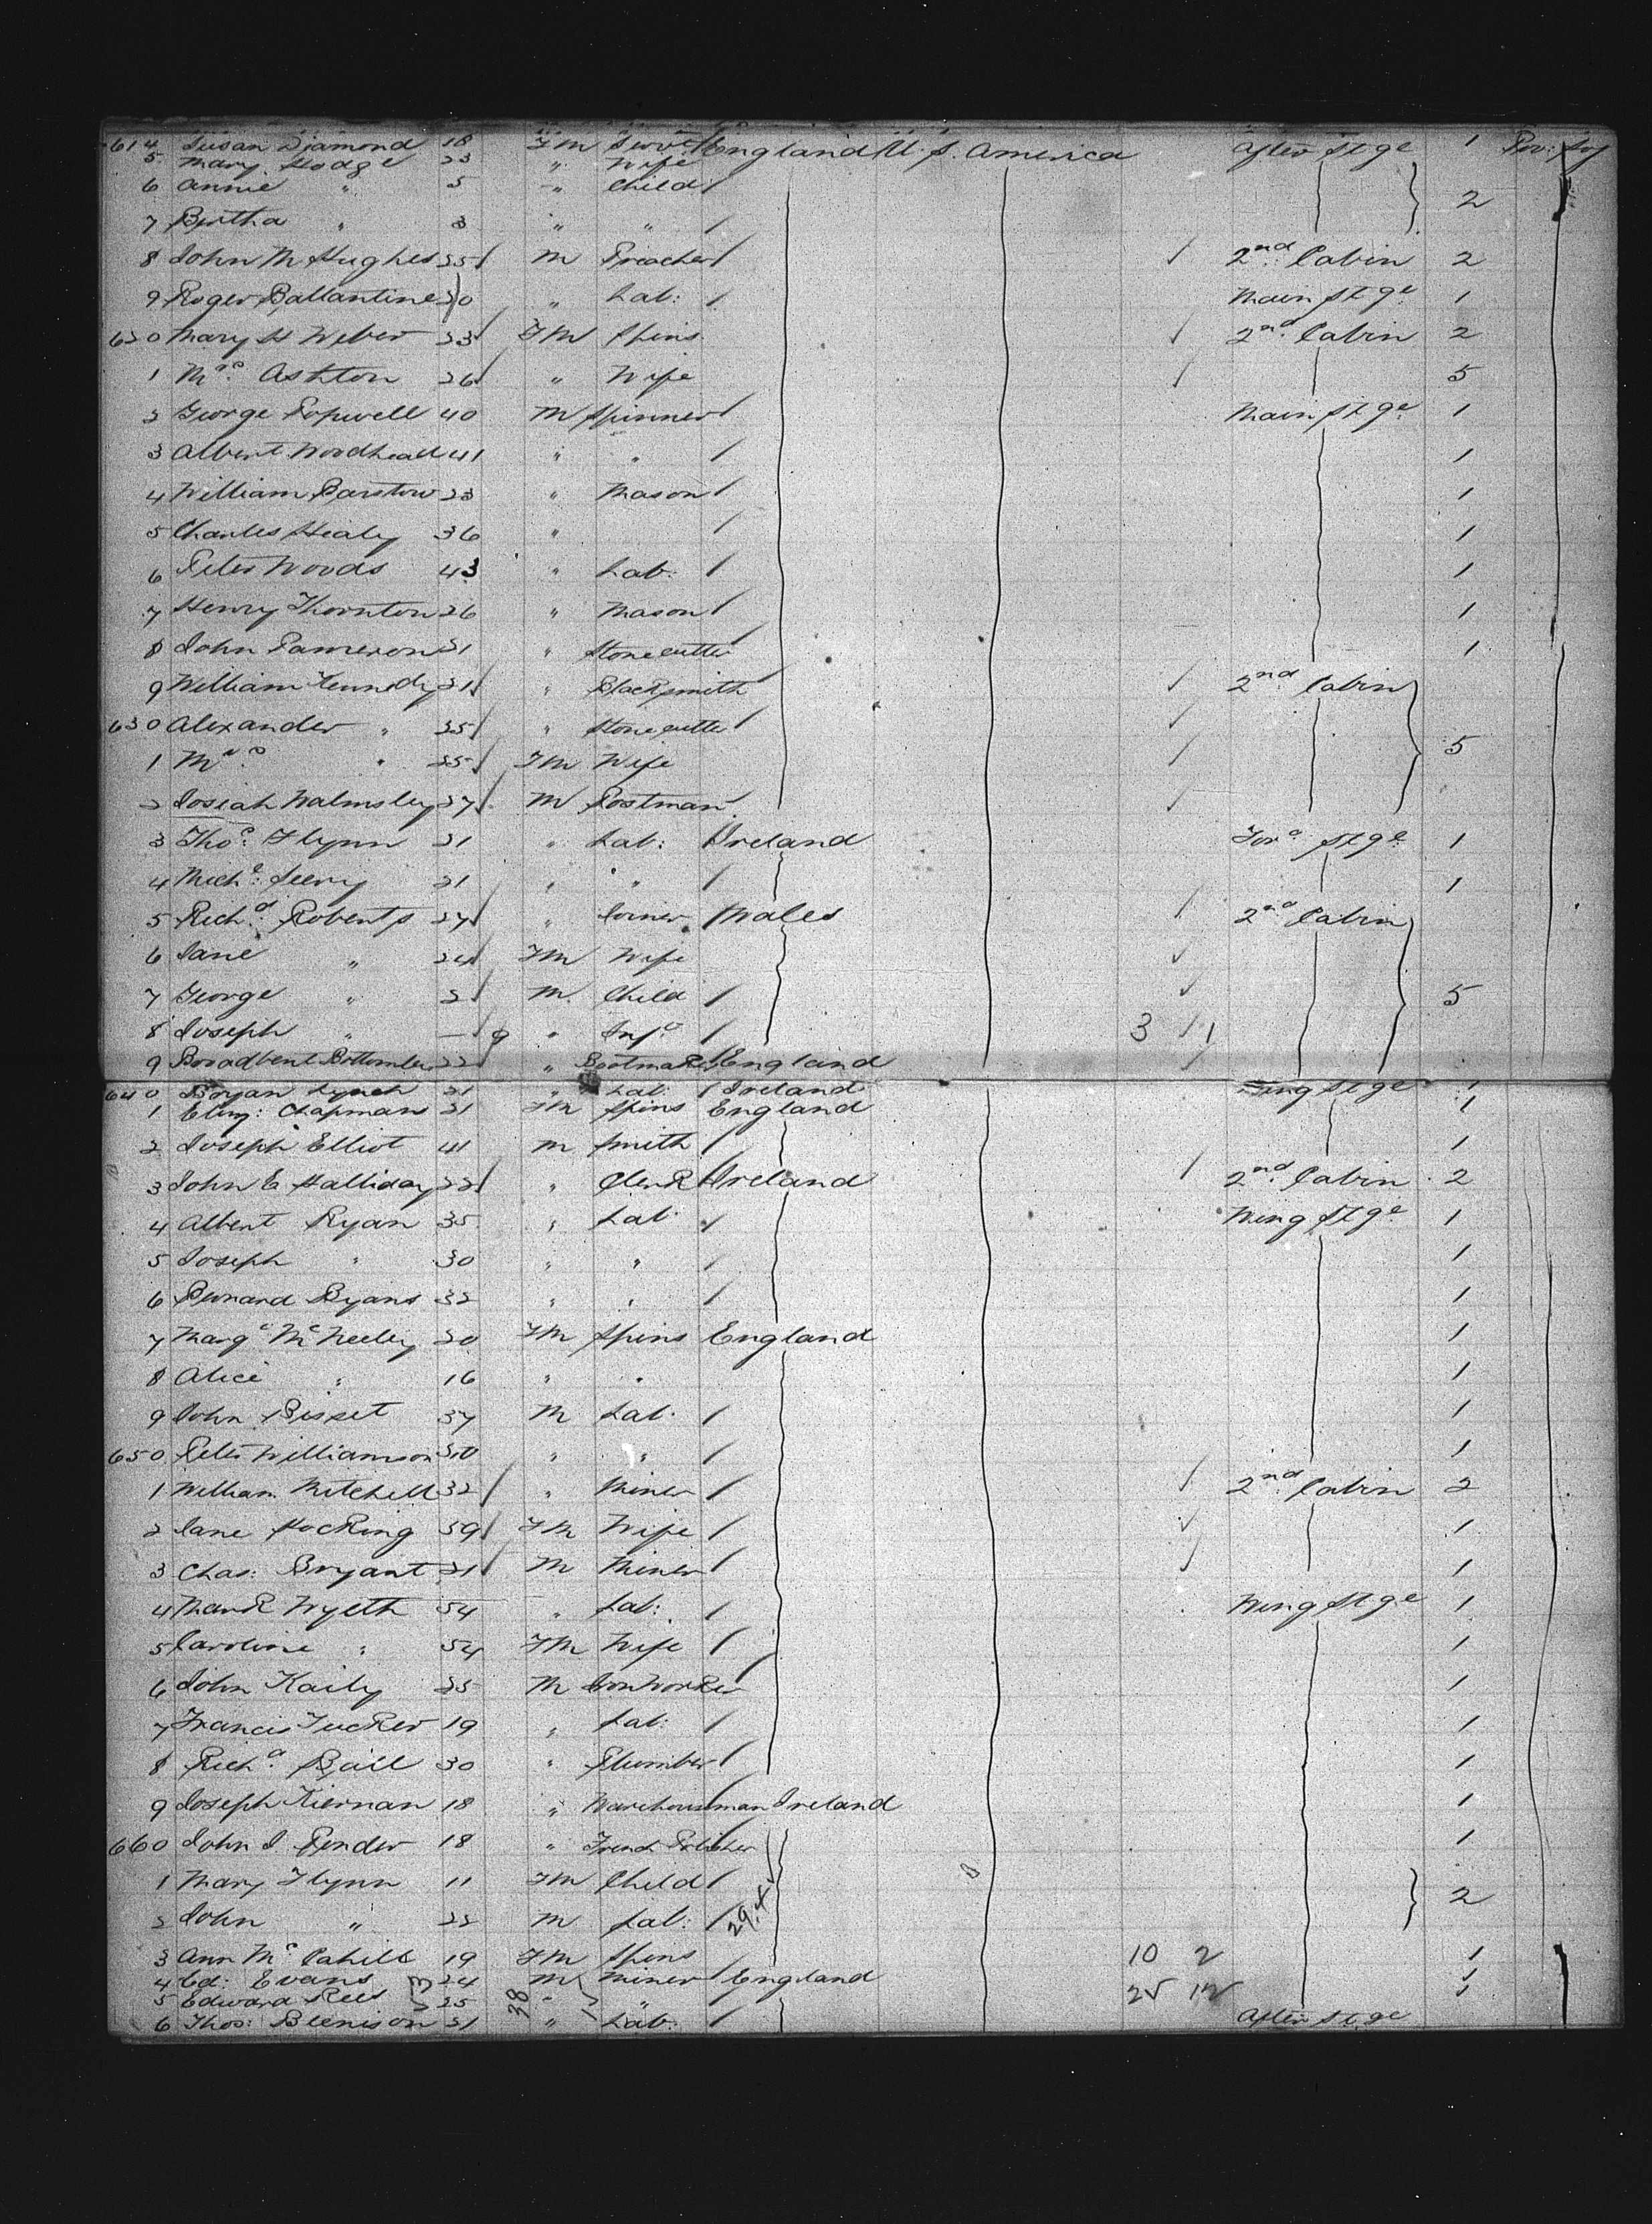 614 Susan Diamond 18 FM Servt England U. S. America After Stge 1
5 Mary Hodge 23 " Wife
6 Annie " 5 " Child 2
7 Bertha " 3 " "
8 John M Hughes 25 M Preacher 2nd Cabin 2
9 Roger Ballantine 20 " Lab: Main Stge 1
620 Mary H Weber 23 FM Spins 2nd Cabin 2
1 Mrs Ashton 26 " Wife 5
2 George Popwell 40 M Spinner Main Stge 1
3 Albert Woodhead 41 " " 1
4 William Barstow 23 " Mason 1
5 Charles Healy 36 " 1
6 Peter Woods 43 " Lab: 1
7 Henry Thornton 26 " Mason 1
8 John 21 " Stonecutter 1
9 William Kennedy 21 " Blacksmith 2nd Cabin
630 Alexander " 25 " Stonecutter
1 Mrs " 25 FM Wife 5
2 Josiah Walmsley 27 M Postman
3 Thos: Flynn 21 " Lab: Ireland Ford Stge 1
4 Michl: 21 " " 1
5 Richd: Roberts 27 " Joiner Wales 2nd Cabin
6 Jane " 24 FM Wife
7 George " 2 M Child 5
8 Joseph " — 9 " Inft 3 1
9 Broadbent Bottomley 22 " Bootmaker England
640 Bryan Lynch 21 " Lab: Ireland Wing Stge 1
1 Eliz: Chapman 21 FM Spins England 1
2 Joseph Elliot 41 M Smith 1
3 John E Halliday 22 " Clerk Ireland 2nd Cabin 2
4 Albert Ryan 35 " Lab: Wing Stge 1
5 Joseph " 30 " " 1
6 Bernard Byans 32 " " 1
7 Margt McNeeley 20 FM Spins England 1
8 Alice " 16 " " 1
9 John Bisset 37 M Lab: 1
650 Peter Williamson " " 1
1 William Mitchell 32 " Miner 2nd Cabin 2
2 Jane Hocking 59 FM Wife 1
3 Chas: Bryant 21 M Miner 1
4 Mark Wyeth 54 " Lab: Wing Stge 1
5 Caroline " 54 FM Wife 1
6 John Kaily 25 M Ironworker 1
7 Francis Tucker 19 " Lab: 1
8 Richd: Ball 30 " Plumber 1
9 Joseph Kiernan 18 " Warehouseman Ireland 1
660 John J. Pender 18 " French Polisher 1
1 Mary Flynn 11 FM Child 2
2 John " 22 M Lab: 294
3 Ann McCahill 19 FM Spins 10 2 1
4 Ed: Evans 24 M Miner England 1
5 Edward Rees 25 38 " " 25 12 1
6 Thos: Blenison 21 " Lab: After Stge